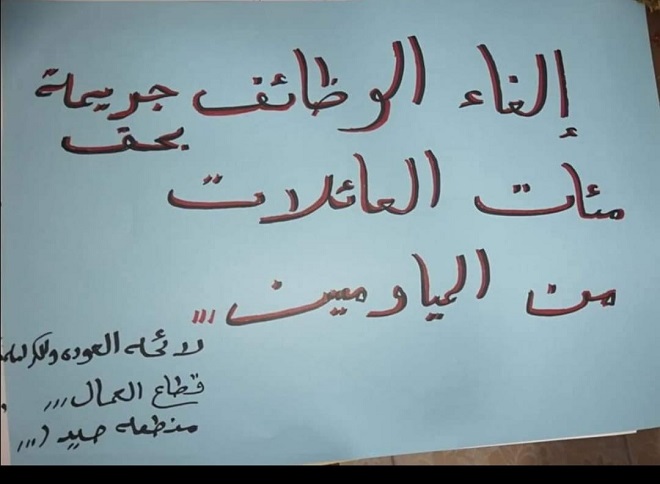 إلغاء الوظائف جريمة
بحق
مئات العائلات
من المياومين,,,
لائحة العودة والكرامة
قطاع العمال,,,
منطقة صيدا,,,